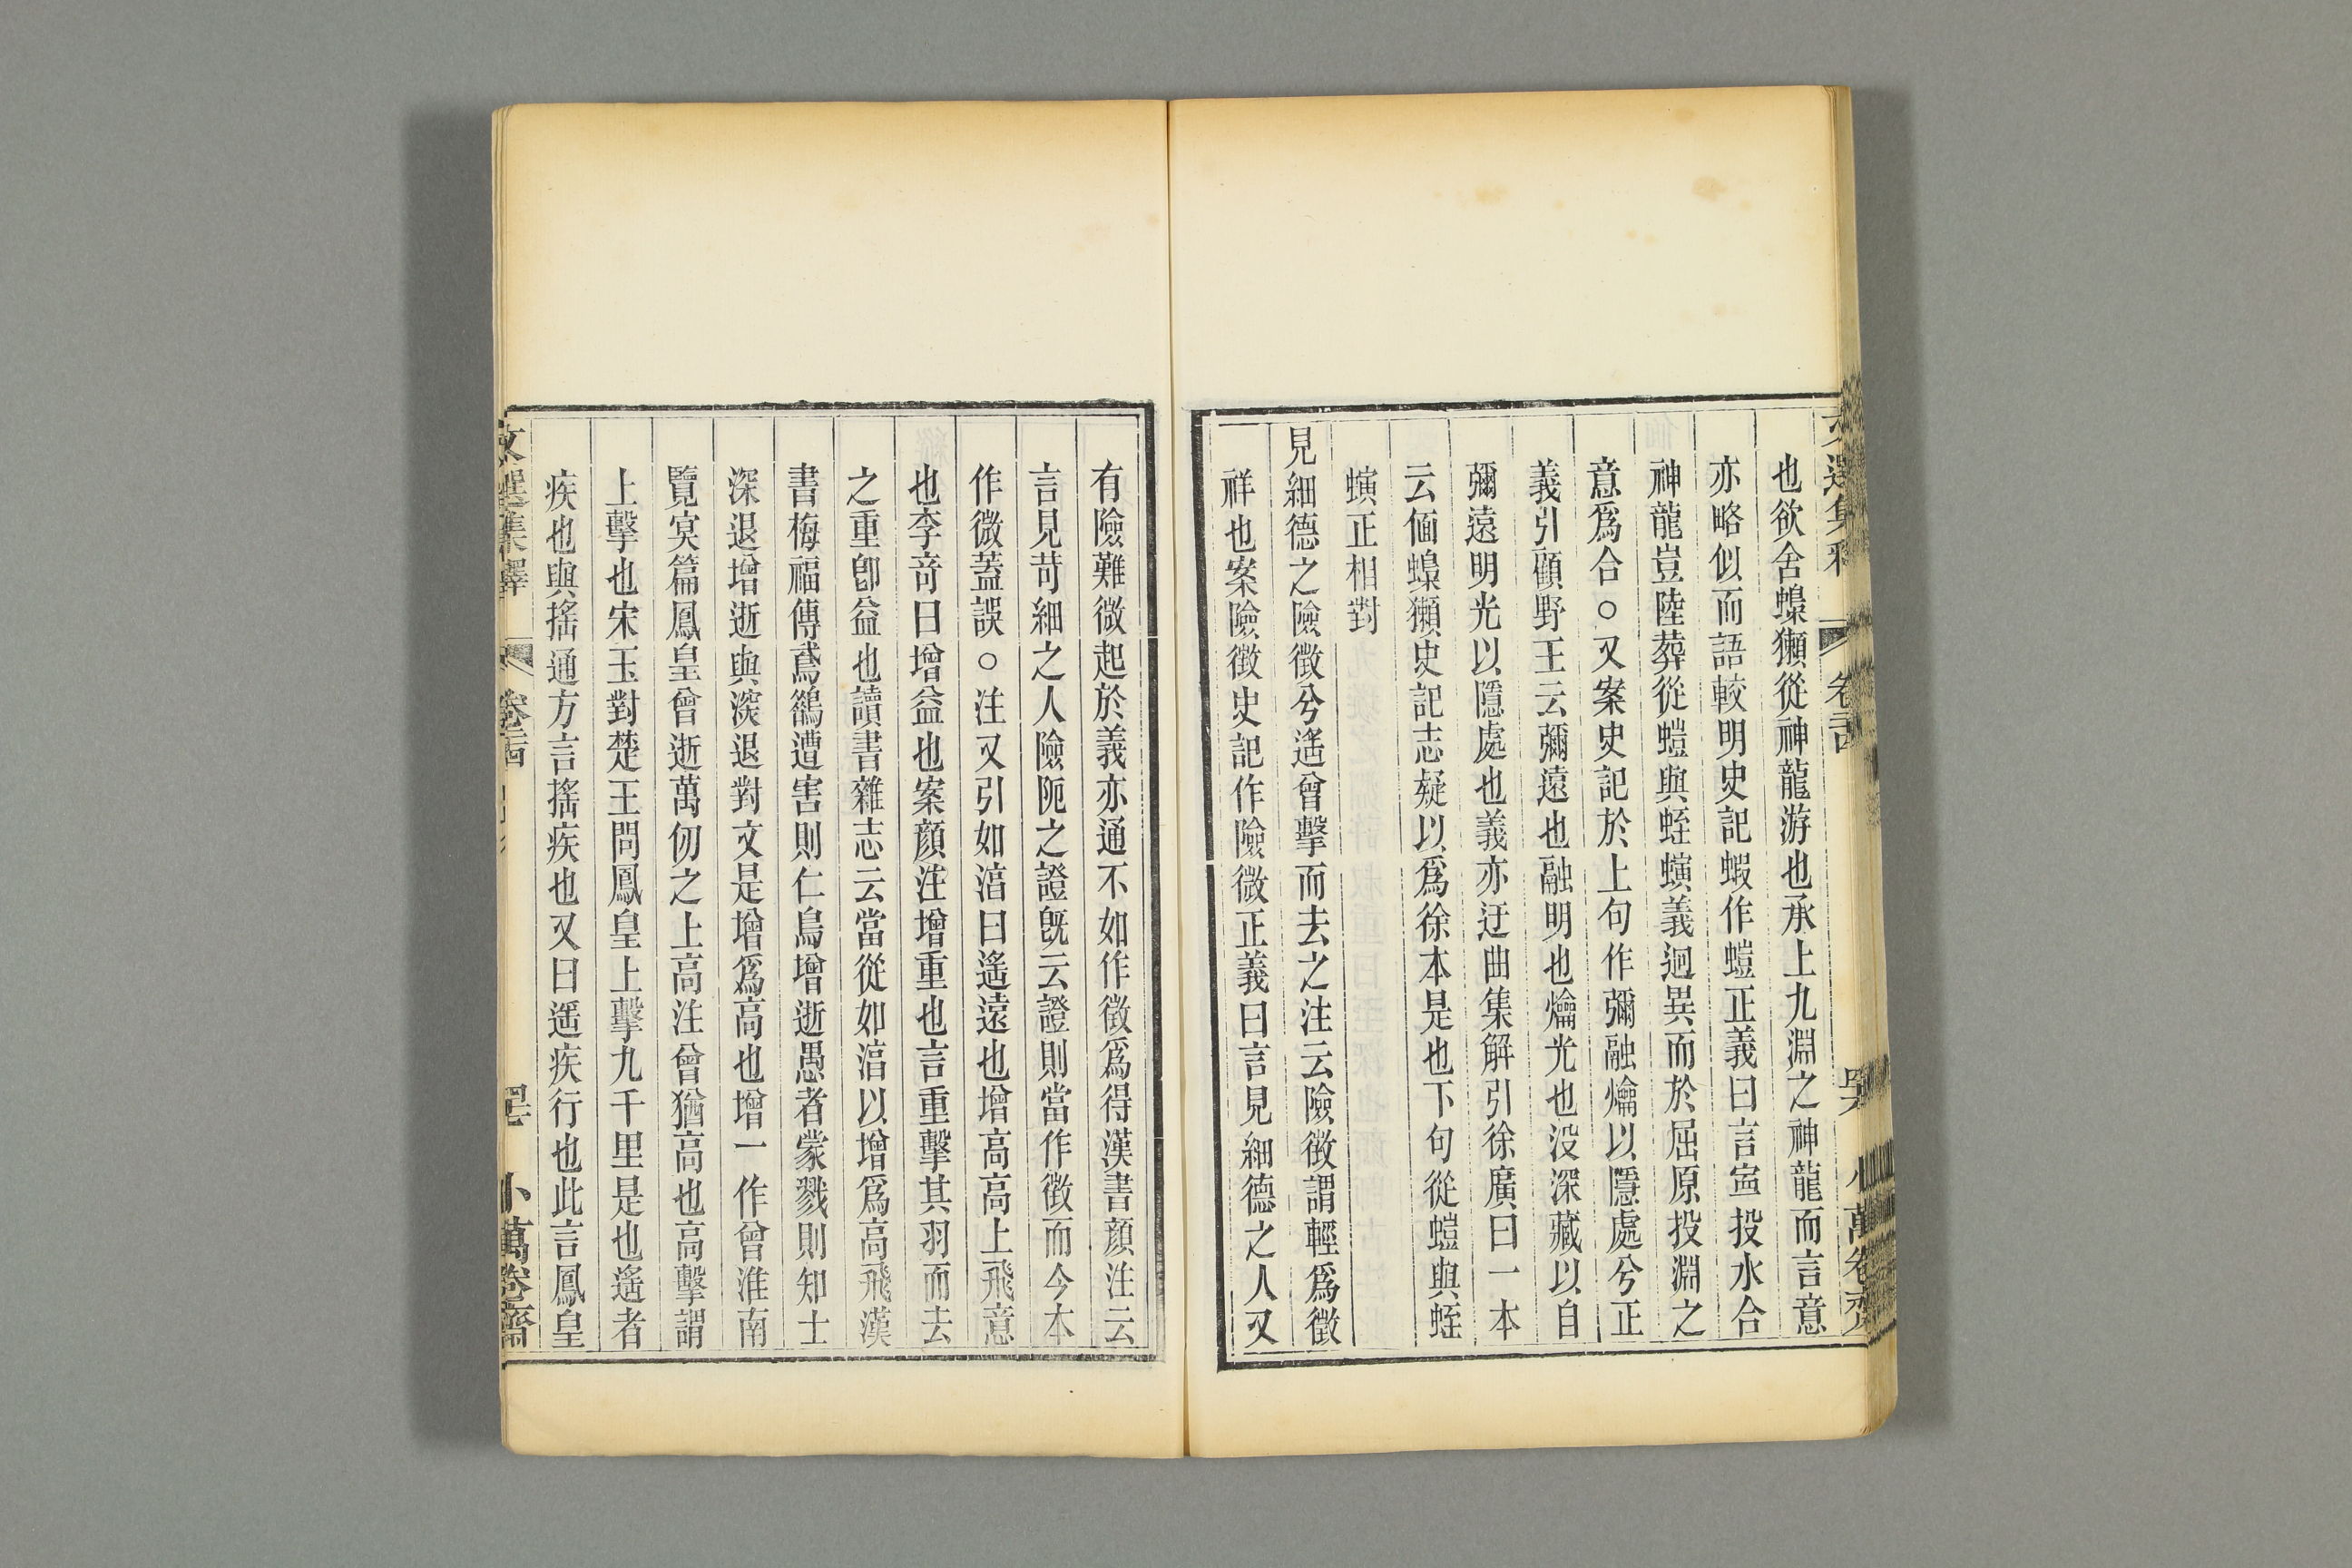 也欲舍蟂獺從神龍游也承上九淵之神龍而言意
亦略似而語較明史記蝦作螘正義曰言寍投水合
神龍豈陸葬從螘與蛭螾義迥異而於屈原投淵之
意爲合○又案史記於上句作彌融爚以隱處兮正
義引顧野王云彌遠也融明也爚光也没深藏以自
彌遠明光以隱處也義亦迂曲集解引徐廣曰一本
云偭蟂獺史記志疑以爲徐本是也下句從螘與蛭
螾正相對
見細德之險徵兮遙曾擊而去之注云險徵謂輕爲徵
祥也案險徵史記作險微正義曰言見細德之人又
有險難微起於義亦通不如作徵爲得漢書顏注云
言見苛細之人險阨之證旣云證則當作徵而今本
作微蓋誤○注又引如淳曰遙遠也增高高上飛意
也李奇曰增益也案顏注增重也言重擊其羽而去
之重卽益也讀書雜志云當從如淳以增爲高飛漢
書梅福傳鳶鵒遭害則仁鳥增逝愚者蒙戮則知士
深退增逝與深退對文是增爲高也增一作曾淮南
覽冥篇鳳皇曾逝萬仞之上高注曾猶高也高擊謂
上擊也宋玉對楚王問鳳皇上擊九千里是也遙者
疾也與搖通方言搖疾也又曰遥疾行也此言鳳皇
文選集釋
卷二十四
小萬卷齋